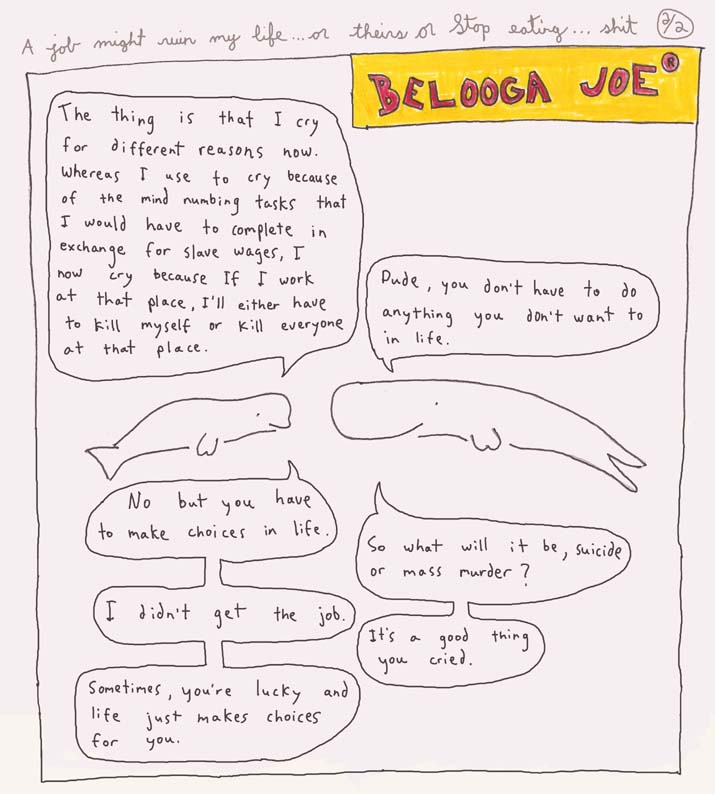 A job might ruin my life...or theirs or Stop eating... shit 2/2
BELOOGA JOE ®
The thing is that I cry
for different reasons now.
Whereas I use to cry because
of the mind numbing tasks that
I would have to complete in
exchange for slave wages, I
now cry because If I work
at that place, I'll either have
to kill myself or kill everyone
at that place.
Dude, you don't have to do
anything you don't want to
in life.
No but you have
to make choices in life.
So what will it be, suicide
or mass murder?
I didn't get the job.
It's a good thing
you cried.
Sometimes, you're lucky and
life just makes choices
for you.